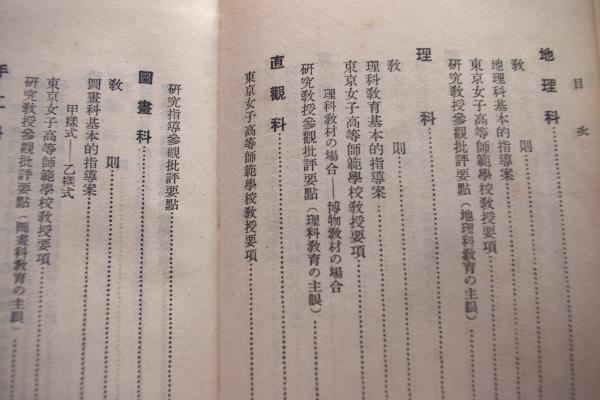 目次
地理科
教則
地理科基本的指導案
東京女子高等師範學校教授要項
研究教授參觀批評要點（地理科教育の主眼）
理科
教則
理科教育基本的指導案
東京女子高等師範學校教授要項
理科教材の場合──博物教材の場合
研究教授參觀批評要點（理科教育の主眼）
直觀科
東京女子高等師範學校教授要項
研究指導參觀批評要點
圖畫科
教則
圖畫科基本的指導案
甲樣式──乙樣式
東京女子高等師範學校教授要項
研究教授參觀批評要點（圖畫科教育の主眼）
手工科